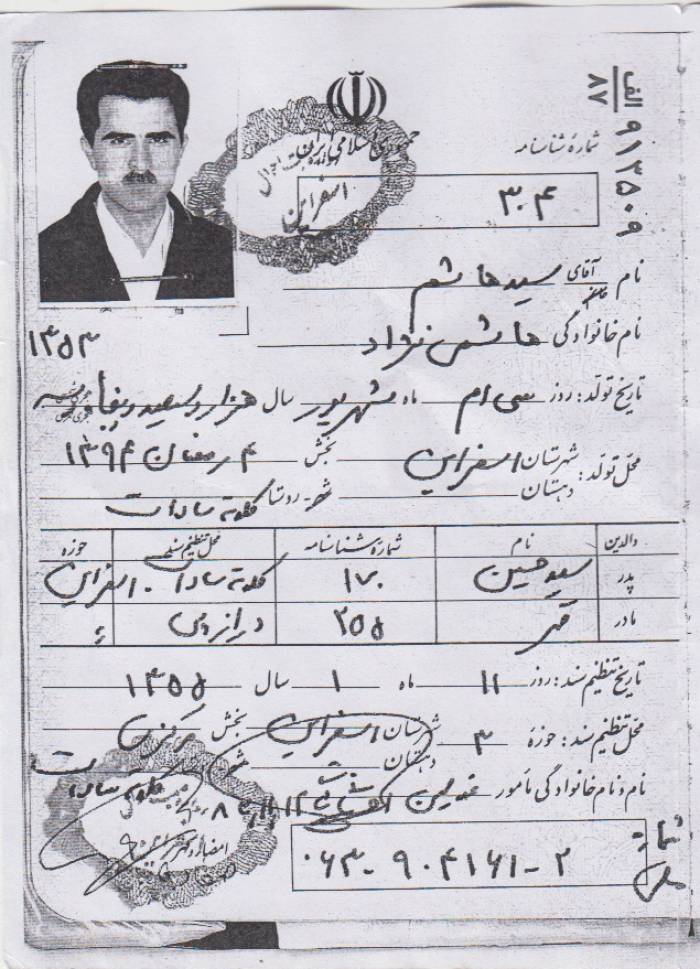 الف
۸۷
۹۱۳۵۰۹
جمهوری اسلامی ایران
اسفراین
شماره شناسنامه
۳۰۴
نام آقای خانم سیدهاشم
نام خانوادگی هاشمی نژاد
۱۳۵۳
تاریخ تولد: روز سی ام ماه شهریور سال هزار و سیصد و پنجاه و سه
محل تولد: شهرستان اسفراین بخش ۴ رمضان ۱۳۹۴
دهستان شهر - روستا کلاته سادات
والدین نام شماره شناسنامه محل تنظیم سند حوزه
پدر سید حسین ۱۷۰ کلاته سادات - اسفراین
مادر قمر ۲۵۵
تاریخ تنظیم سند: روز ۱۱ ماه ۱ سال ۱۳۵۵
محل تنظیم سند: حوزه ۳ شهرستان اسفراین بخش مرکزی
دهستان
نام و نام خانوادگی مأمور
شماره ملی
۰۶۳-۹۰۴۱۶۱-۲